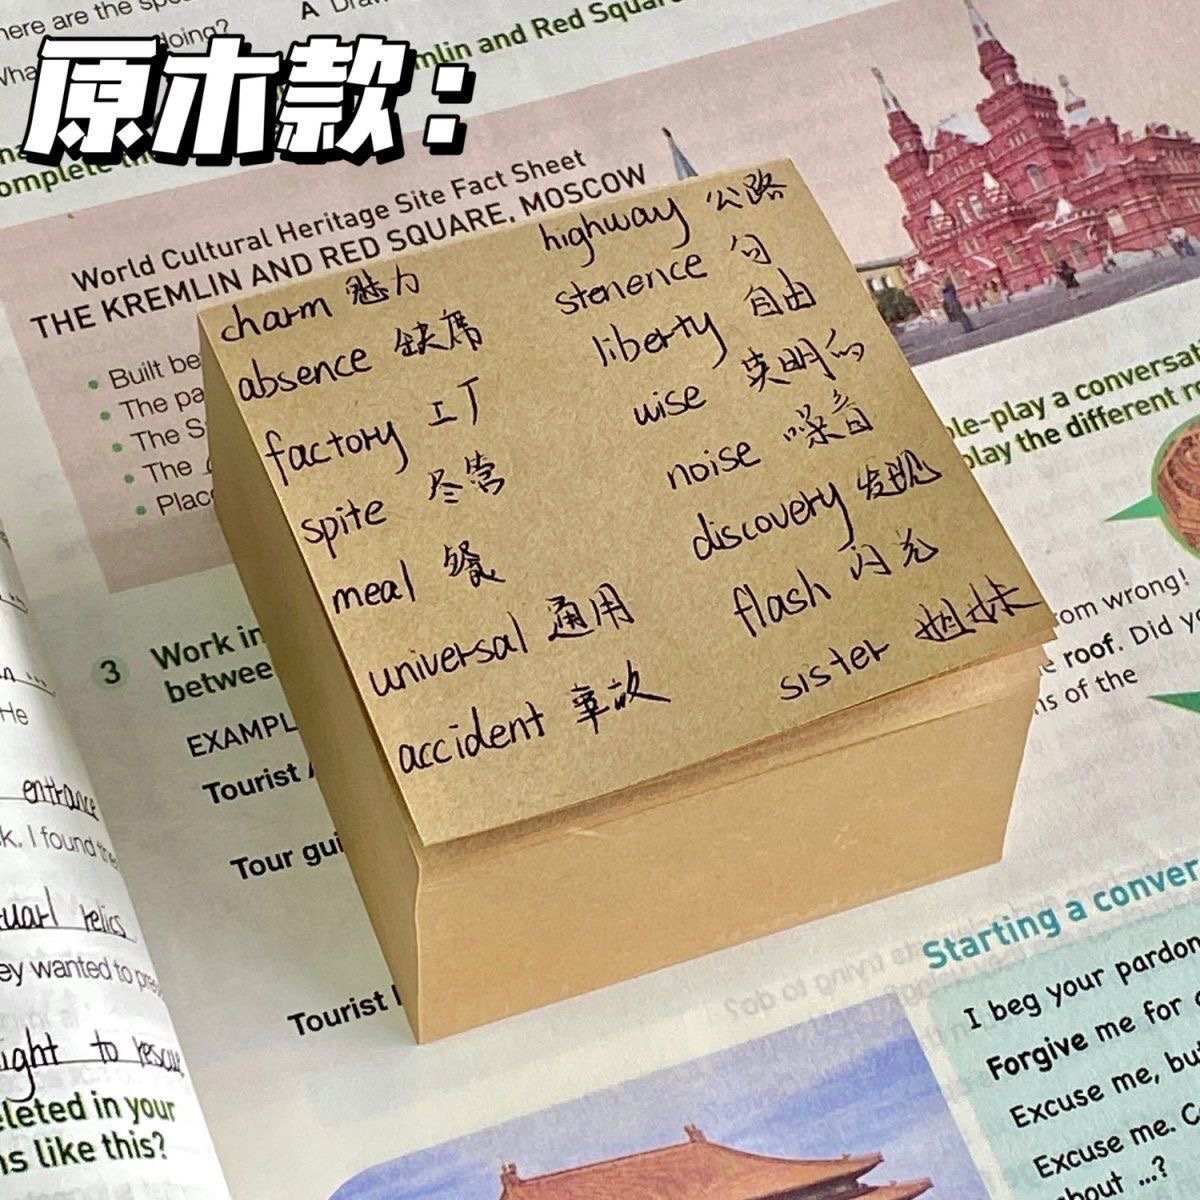 原木款：
A
doing?
mlin and Red Squar
World Cultural Heritage Site Fact Sheet
THE KREMLIN AND RED SQUARE, MOSCOW
Built be
The pa
The S
The
Plac
charm 魅力
absence 缺席
factory 工厂
spite 尽管
meal 餐
universal 通用
accident 事故
highway 公路
stenence 句
liberty 自由
wise 英明的
noise 噪音
discovery 发现
flash 闪光
sister 姐妹
le-play a conversati
play the different r
3 Work in
betwee
EXAMPL
Tourist
Tour gui
Tourist
om wrong!
roof. Did yo
ns of the
He
entrance
k, I found the
tuarl relics
ey wanted to pre
ight to rescue
eleted in your
ns like this?
Starting a conver
I beg your pardon
Forgive me for
Excuse me, but
Excuse me. C
about ...?